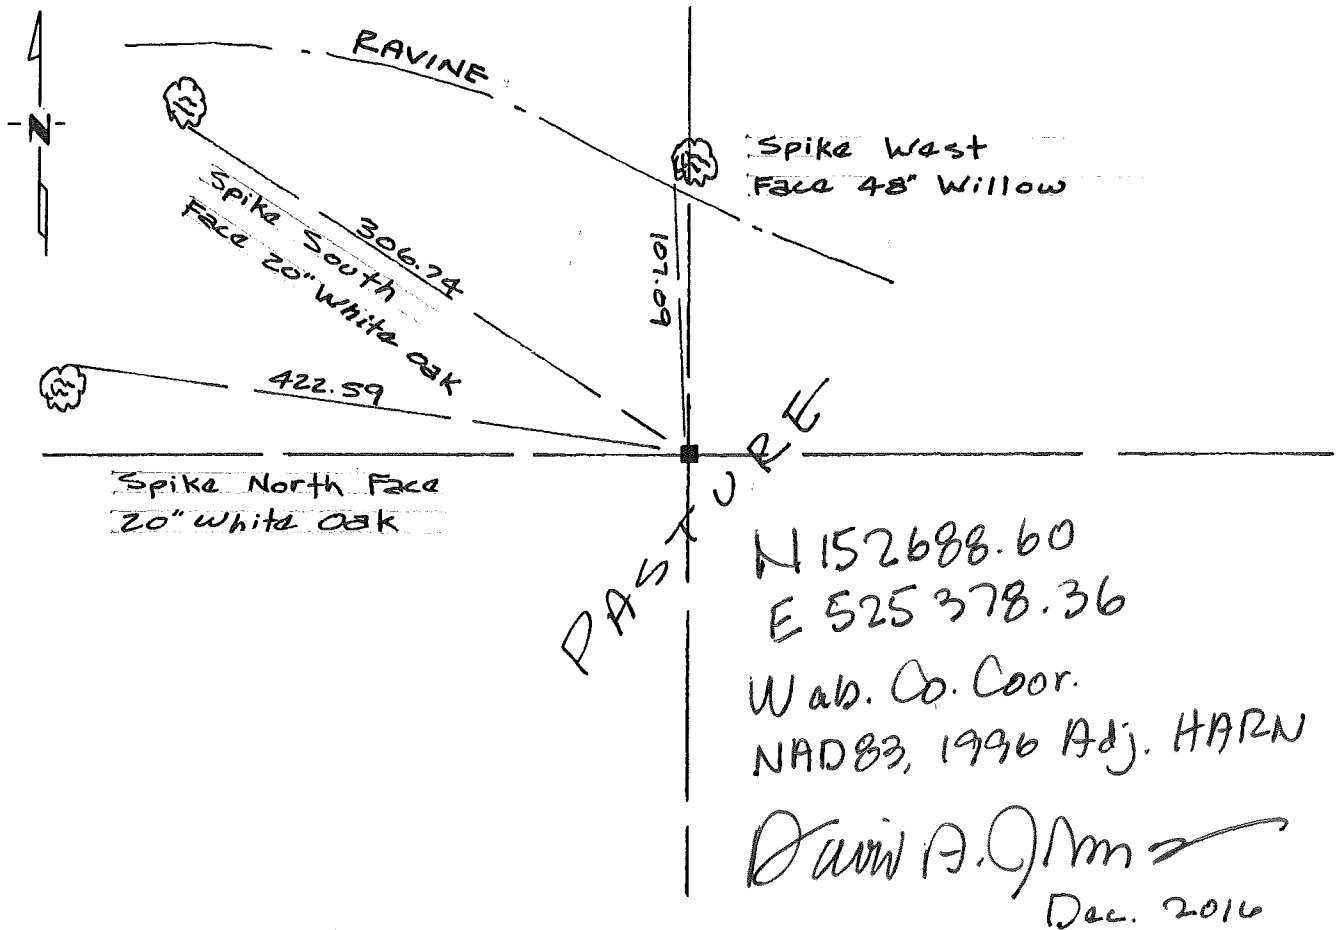 RAVINE
N
Spike West
Face 48" Willow
306.74
Spike South
Face 20" White Oak
107.09
422.59
Spike North Face
20" White Oak
PASTURE
N 152688.60
E 525378.36
Wab. Co. Coor.
NAD83, 1996 Adj. HARN
David A.
Dec. 2016